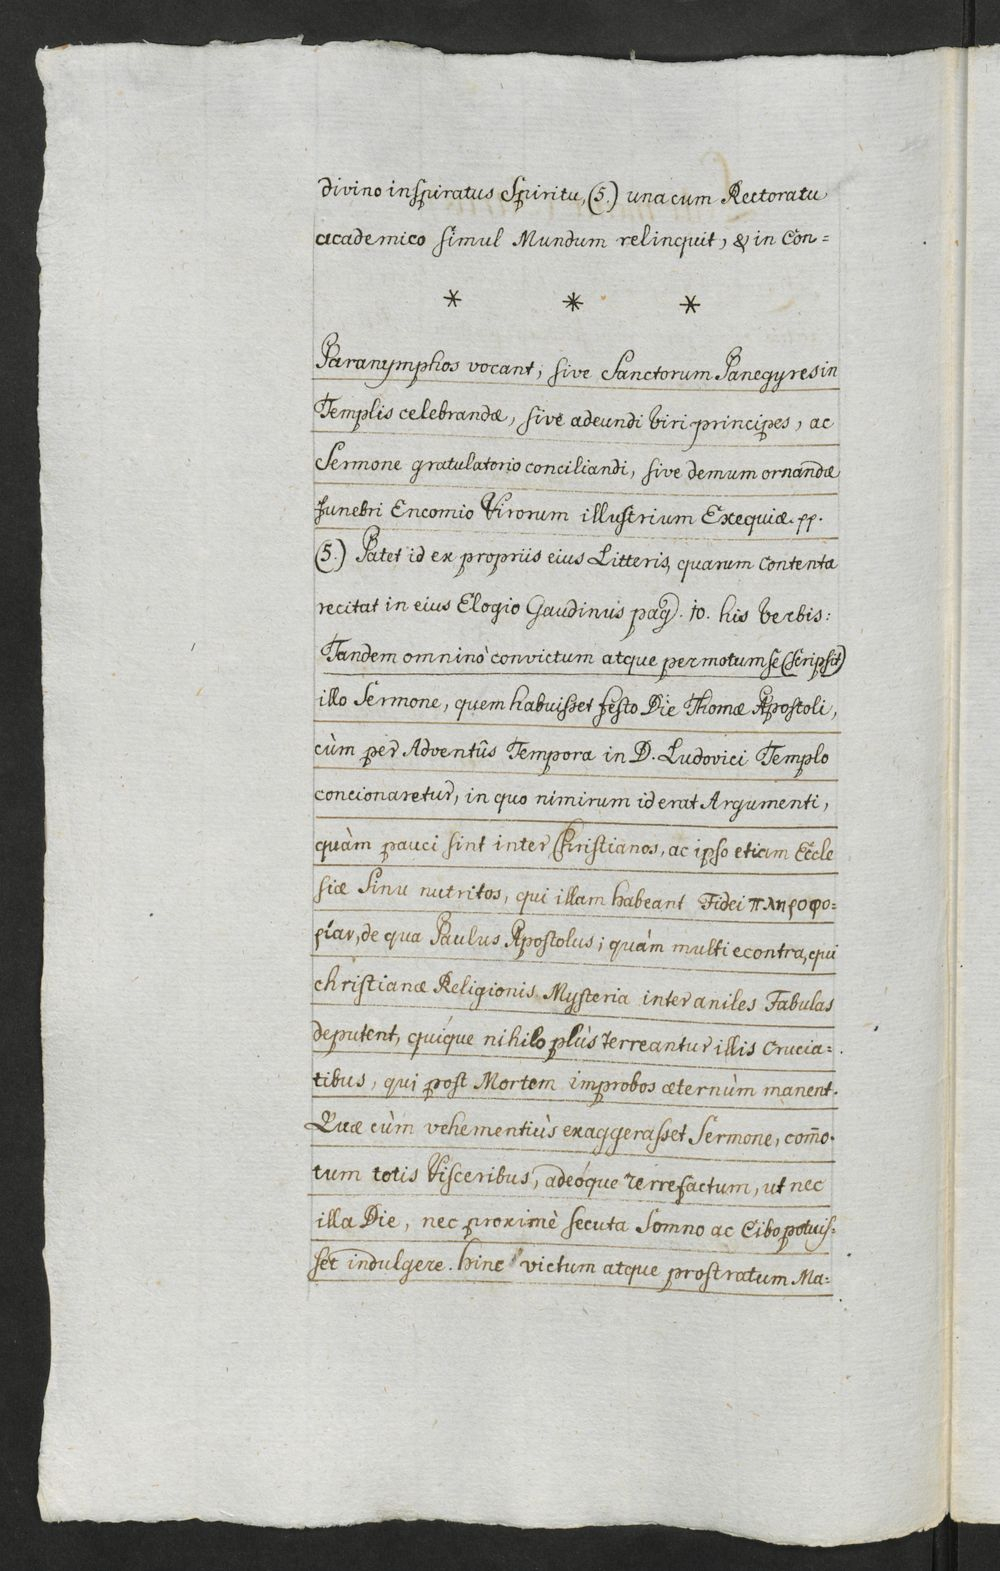 divino inspiratus Spiritu, (5.) una cum Rectoratu
academico simul Mundum relinquit, & in Con=
* * *
Paranymphos vocant, sive Sanctorum Panegyres in
Templis celebrandæ, sive adeundi Viri principes, ac
Sermone gratulatorio conciliandi, sive demum ornandæ
funebri Encomio Virorum illustrium Exequiæ. pp.
(5.) Patet id ex propriis eius Litteris, quarum Contenta
recitat in eius Elogio Gaudinus pag. 10. his Verbis:
Tandem omninò convictum atque permotum se (scripsit)
illo Sermone, quem habuisset festo Die Thomæ Apostoli,
cùm per Adventûs Tempora in D. Ludovici Templo
concionaretur, in quo nimirum id erat Argumenti,
quàm pauci sint inter Christianos, ac ipso etiam Eccle
siæ Sinu nutritos, qui illam habeant Fidei πληροφο=
ρίαν, de qua Paulus Apostolus; quàm multi econtra, qui
christianæ Religionis Mysteria inter aniles Fabulas
deputent, quíque nihilo plùs terreantur illis Crucia=
tibus, qui post Mortem improbos æternùm manent.
Quæ cùm vehementiùs exaggerasset Sermone, com̄o=
tum totis Visceribus, adeóque terrefactum, ut nec
illa Die, nec proximè secuta Somno ac Cibo potuis=
set indulgere. hinc victum atque prostratum Ma=